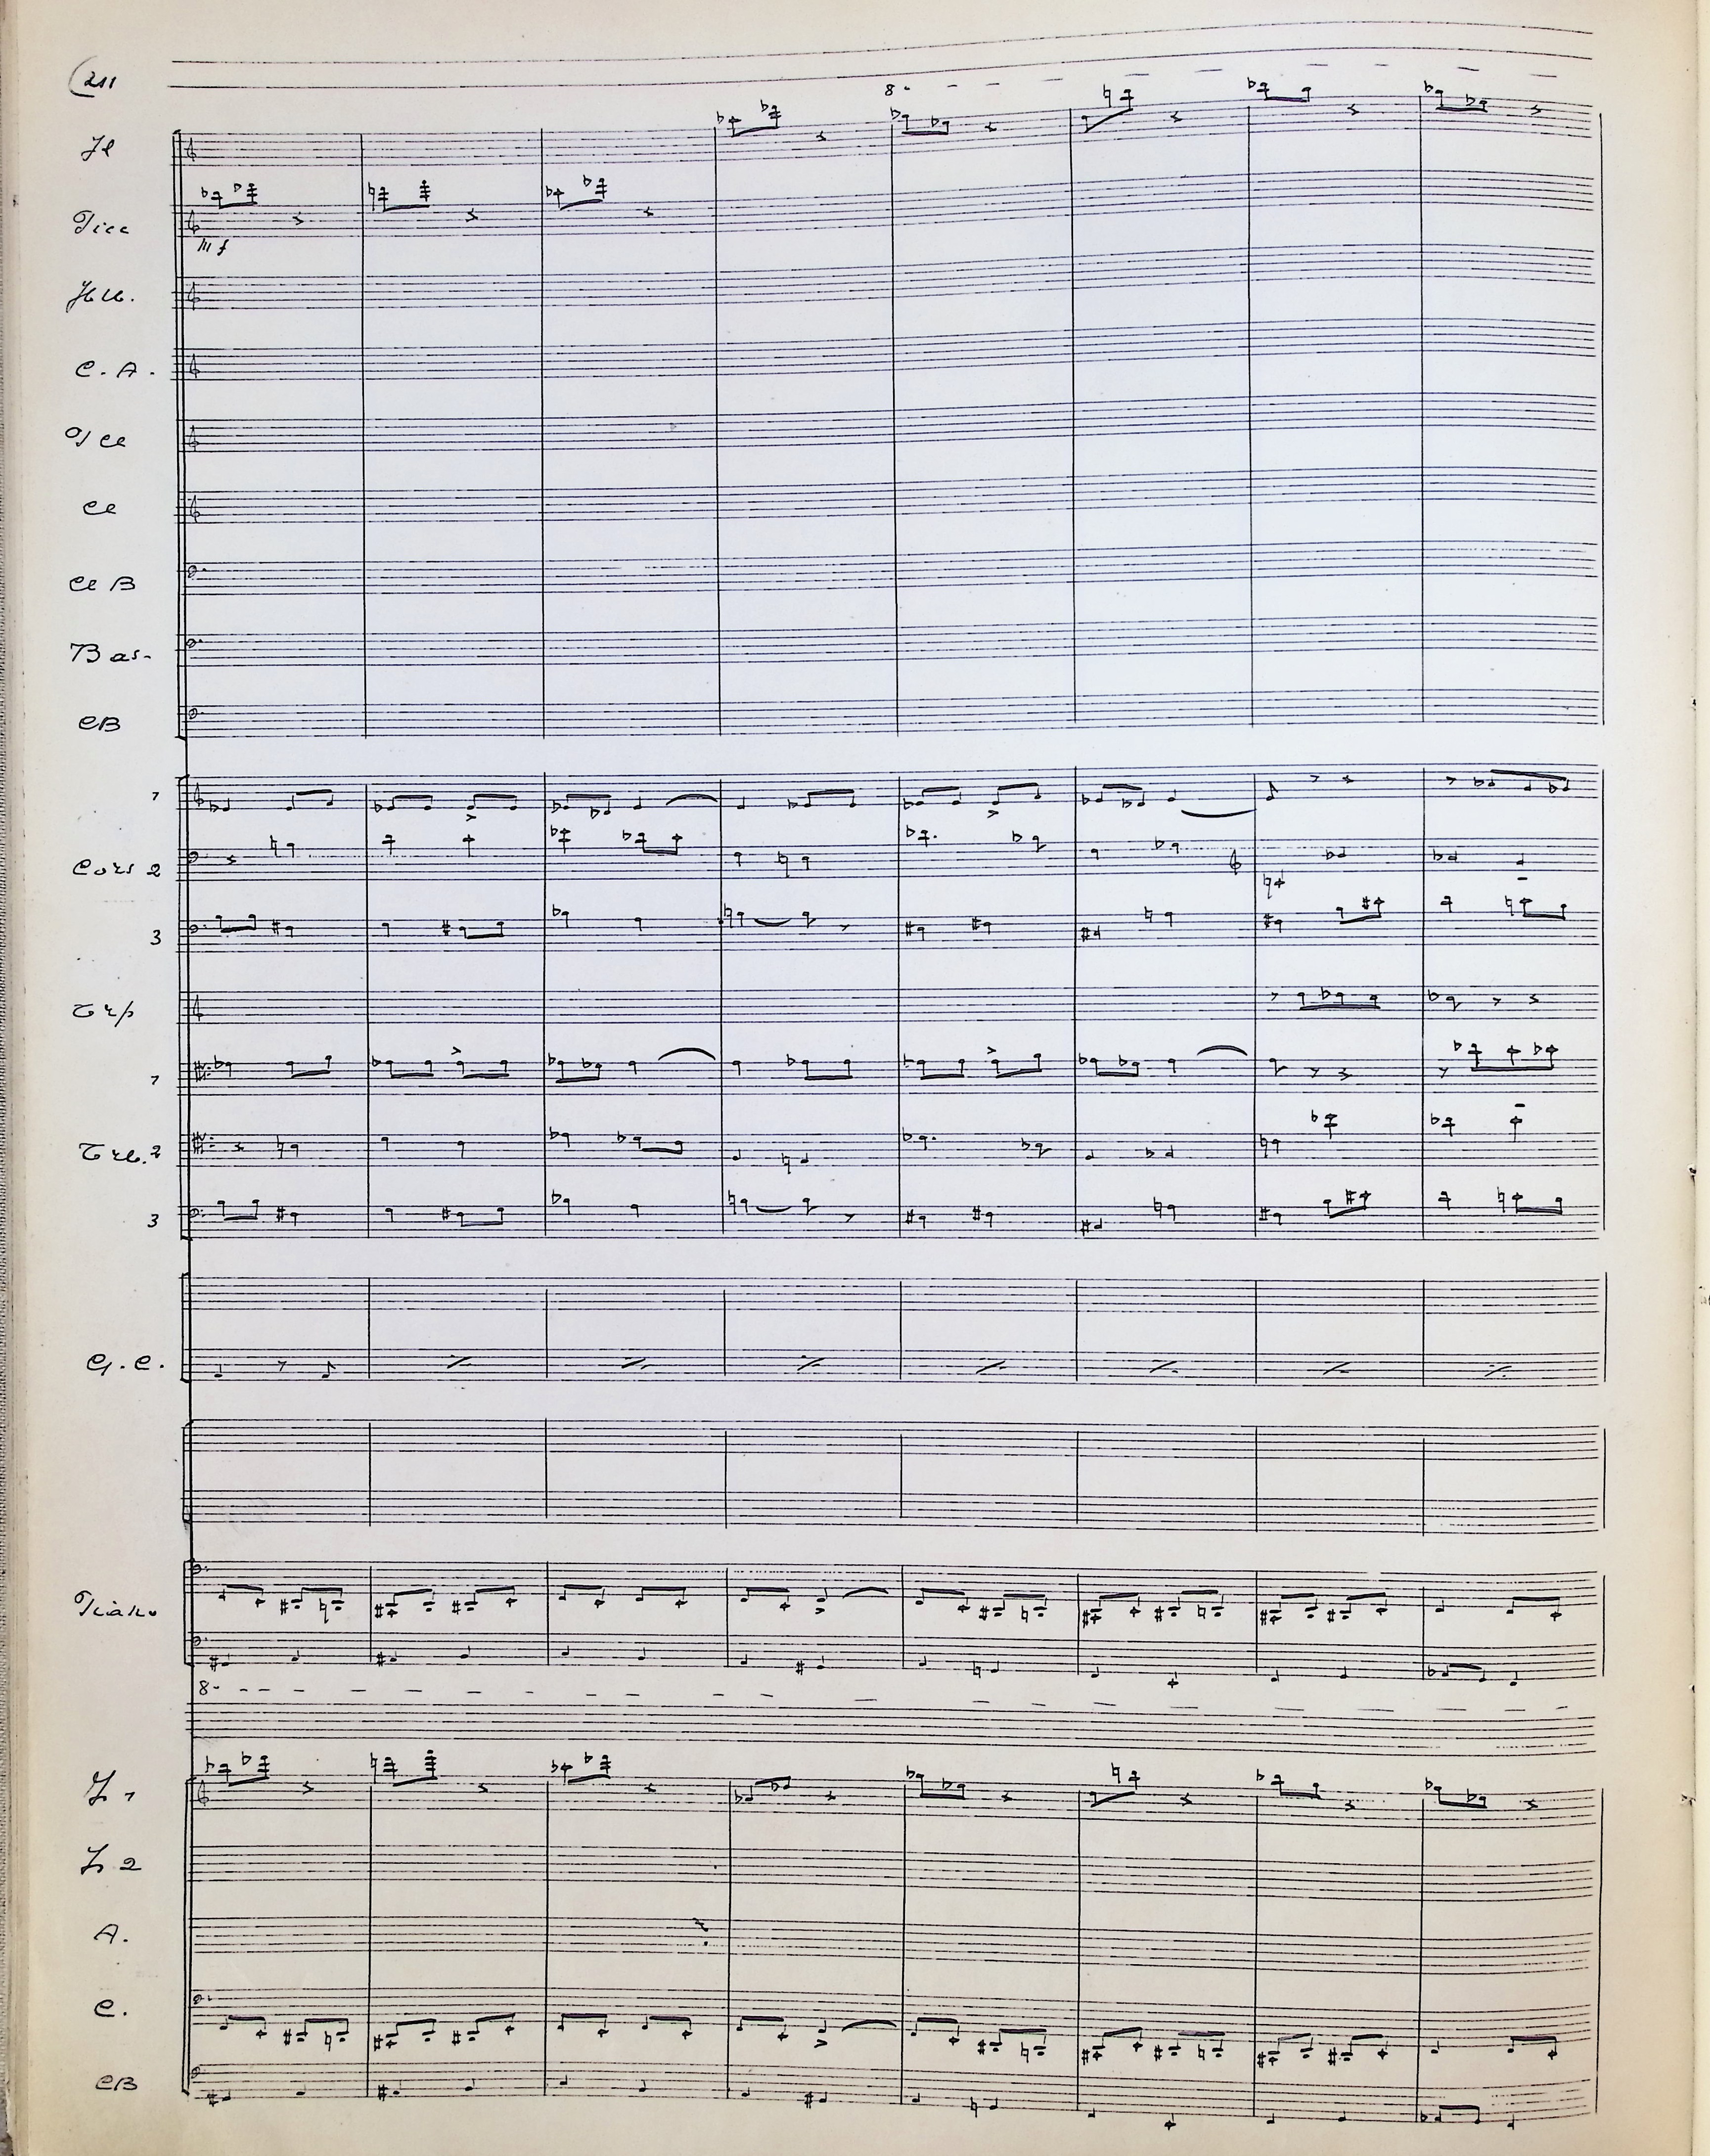 211
8-
Fl
Picc
mf
Htb.
C. A.
P cl
Cl
Cl B
Bas-
CB
1
Cors 2
3
Trp
1
Trb. 2
3
G. C.
Piano
8-
V. 1
V. 2
A.
C.
CB